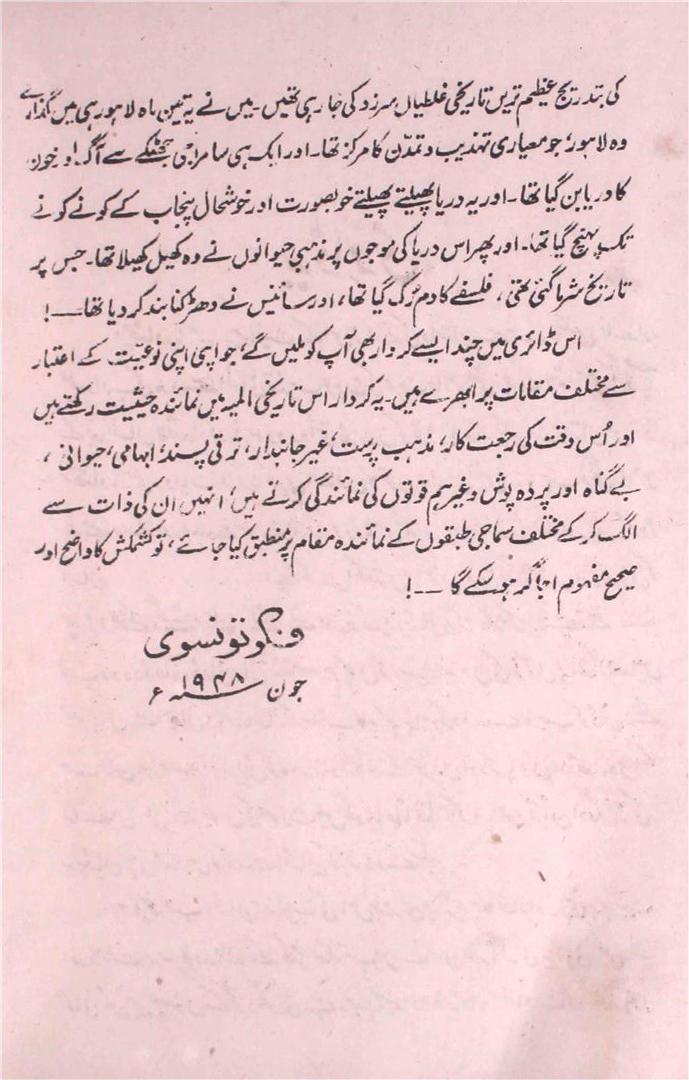 کی بتدریج عظیم ترین تاریخی غلطیاں سرزد کی جا رہی تھیں۔ میں نے یہ تین ماہ لاہور ہی میں گذارے
وہ لاہور، جو معیاری تہذیب و تمدّن کا مرکز تھا۔ اور ایک ہی سامراجی جھٹکے سے آگ اور خون
کا دریا بن گیا تھا۔ اور یہ دریا پھیلتے پھیلتے خوبصورت اور خوشحال پنجاب کے کونے کونے
تک پہنچ گیا تھا۔ اور پھر اس دریا کی موجوں پر مذہبی حیوانوں نے وہ کھیل کھیلا تھا۔ جس پر
تاریخ شرما گئی تھی، فلسفے کا دم رُک گیا تھا، اور سائنس نے دھڑکنا بند کر دیا تھا۔۔۔!
اس ڈائری میں چند ایسے کردار بھی آپ کو ملیں گے، جو اپنی اپنی نوعیّت کے اعتبار
سے مختلف مقامات پر ابھرے ہیں۔ یہ کردار اس تاریخی المیہ میں نمائندہ حیثیت رکھتے ہیں
اور اُس وقت کی رجعت کار، مذہب پرست، غیر جانبدار، ترقی پسند، ابہامی، حیوانی،
بے گناہ اور پردہ پوش وغیرہم قوتوں کی نمائندگی کرتے ہیں، انہیں ان کی ذات سے
الگ کر کے مختلف سماجی طبقوں کے نمائندہ مقام پر منطبق کیا جائے، تو کشمکش کا واضح اور
صحیح مفہوم اجاگر ہو سکے گا ۔۔!
فکر تونسوی
جون ۱۹۴۸ء